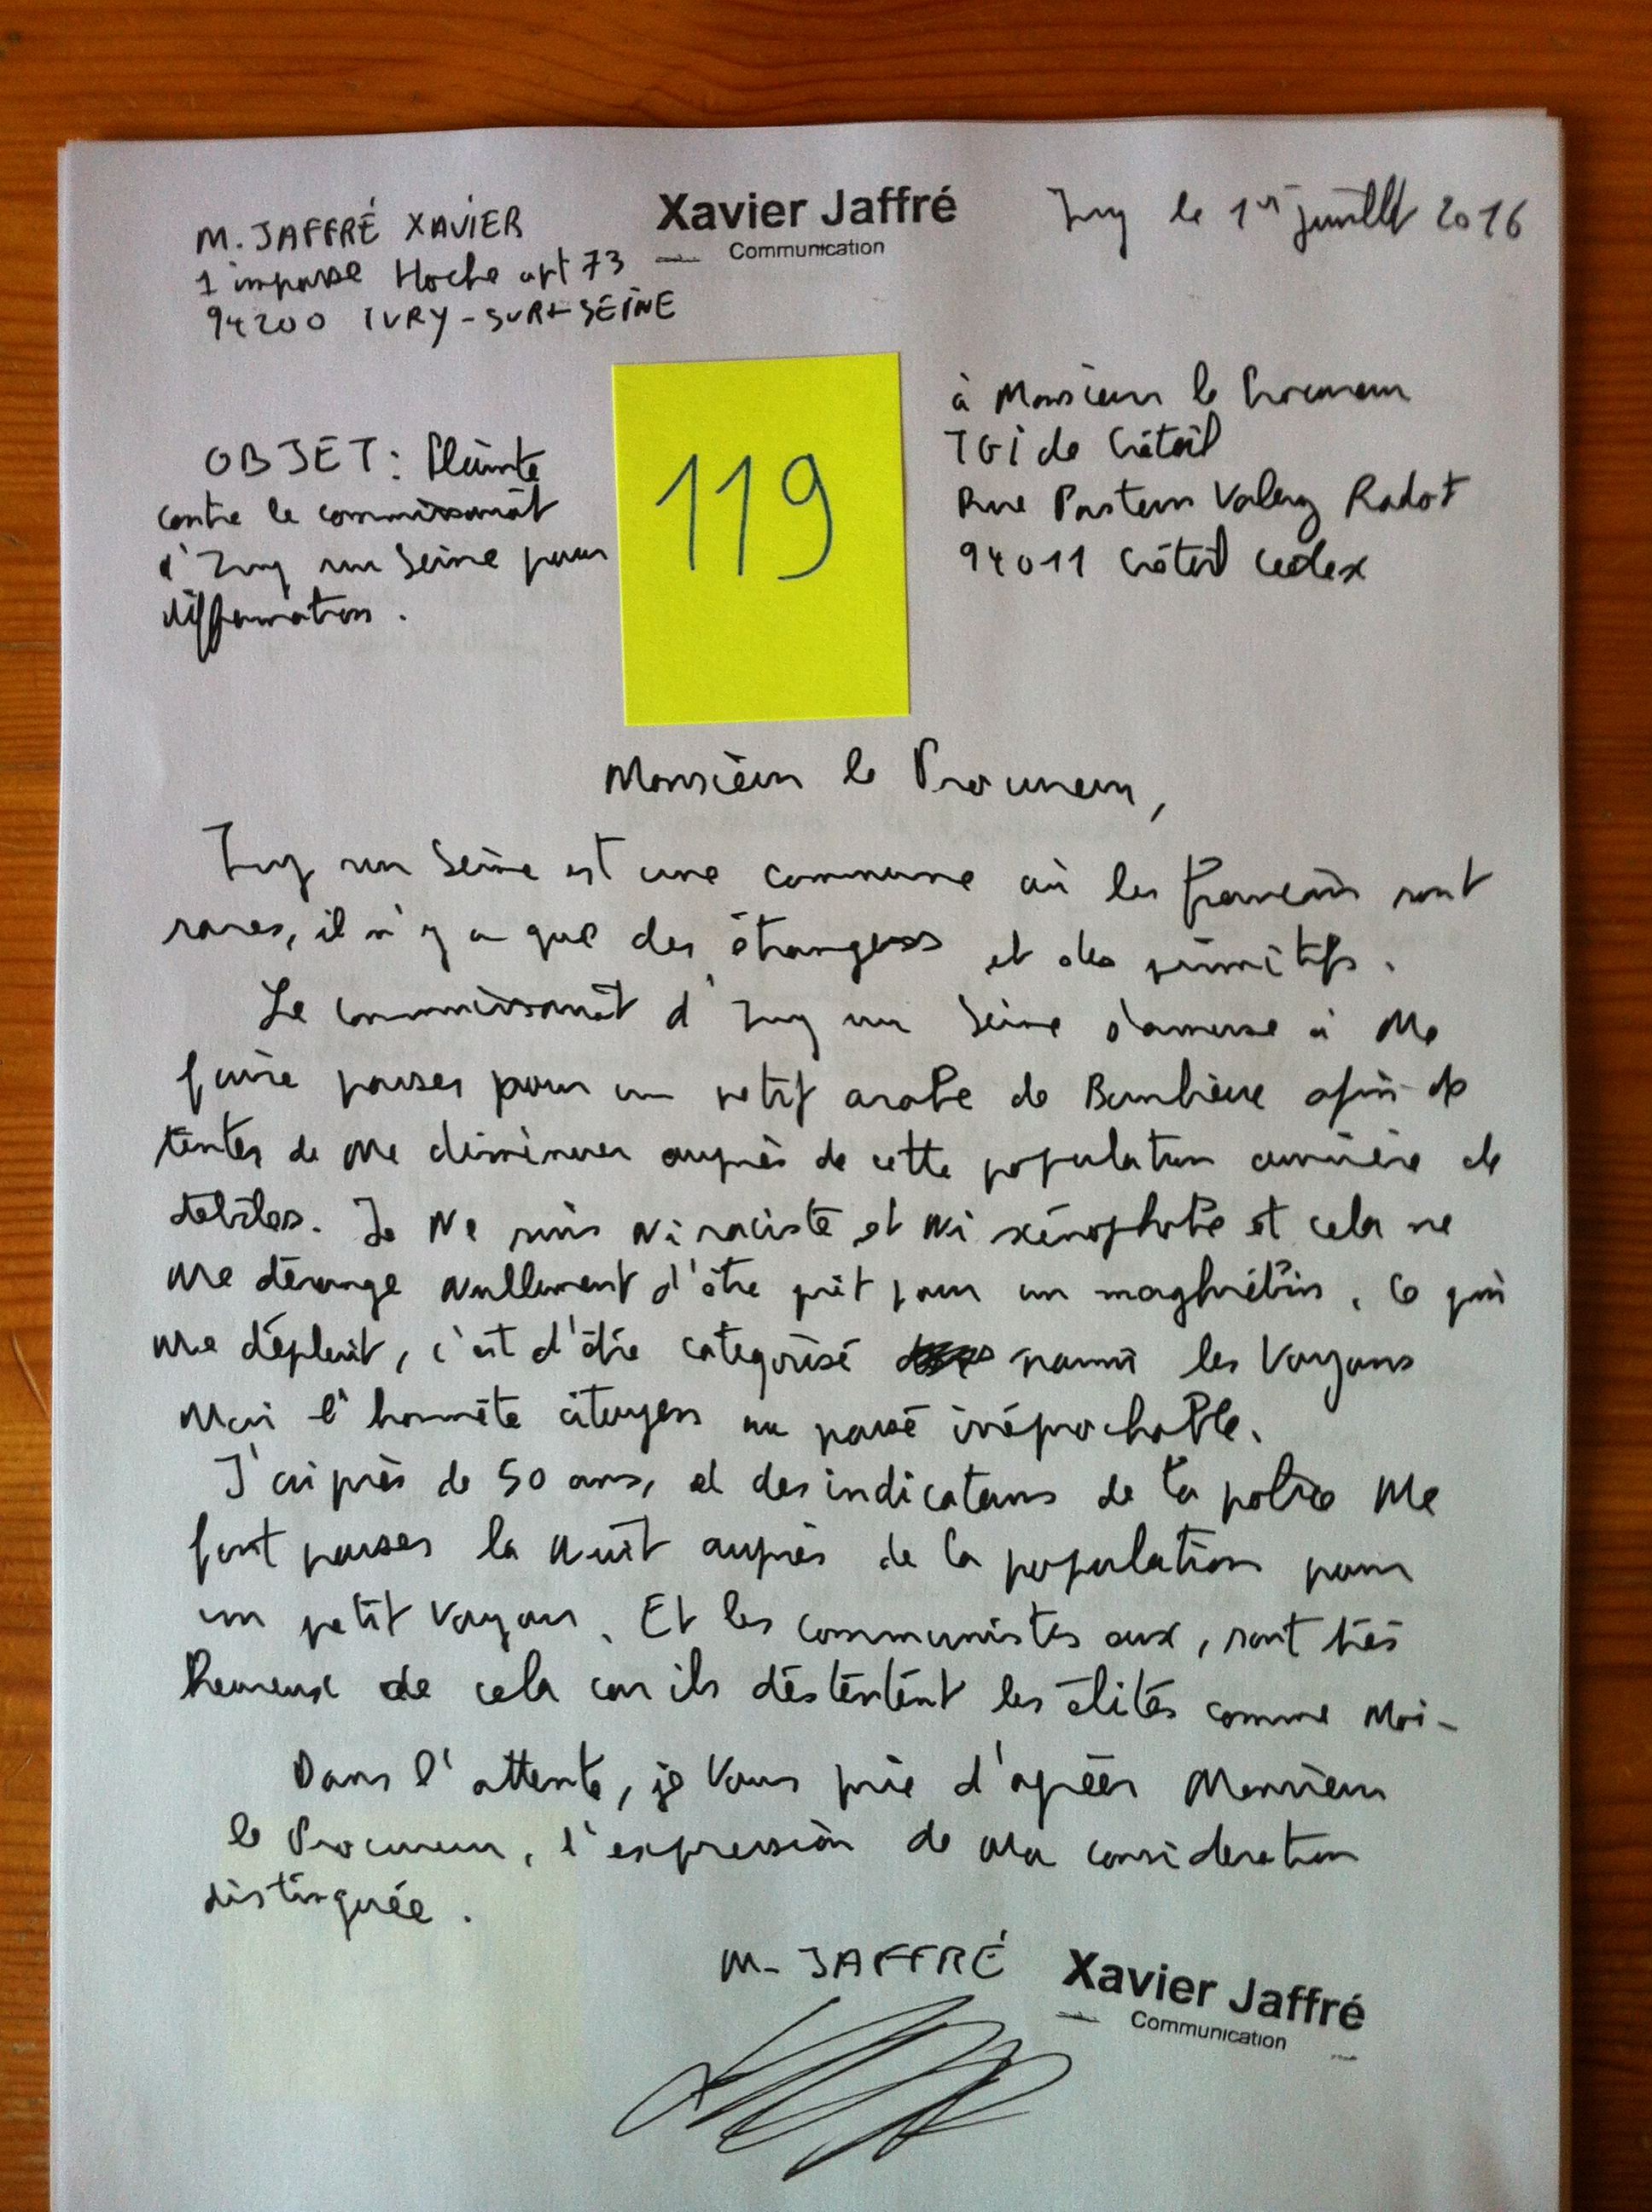 M. JAFFRÉ XAVIER
1 impasse Hoche apt 73
94200 IVRY-SUR-SEINE
Xavier Jaffré
Communication
Ivry le 1er juillet 2016
OBJET: Plainte
contre le commissariat
d'Ivry sur Seine pour
diffamation.
119
à Monsieur le Procureur
TGI de Créteil
Rue Pasteur Valery Radot
94011 Créteil Cedex
Monsieur le Procureur,
Ivry sur Seine est une commune où les français sont
rares, il n'y a que des étrangers et des primitifs.
Le commissariat d'Ivry sur Seine s'amuse à me
faire passer pour un petit arabe de Banlieue afin de
tenter de me diminuer auprès de cette population ouvrière de
débiles. Je ne suis ni raciste et ni xénophobe et cela ne
me dérange nullement d'être prit pour un maghrébin. Ce qui
me déplait, c'est d'être catégorisé parmi les voyous
moi l'honnête citoyen au passé irréprochable.
J'ai près de 50 ans, et des indicateurs de la police me
font passer la nuit auprès de la population pour
un petit voyou. Et les communistes eux, sont très
heureux de cela car ils déstestent les élites comme moi-
Dans l'attente, je vous prie d'agréer Monsieur
le Procureur, l'expression de ma considération
distinguée.
M. JAFFRÉ
Xavier Jaffré
Communication